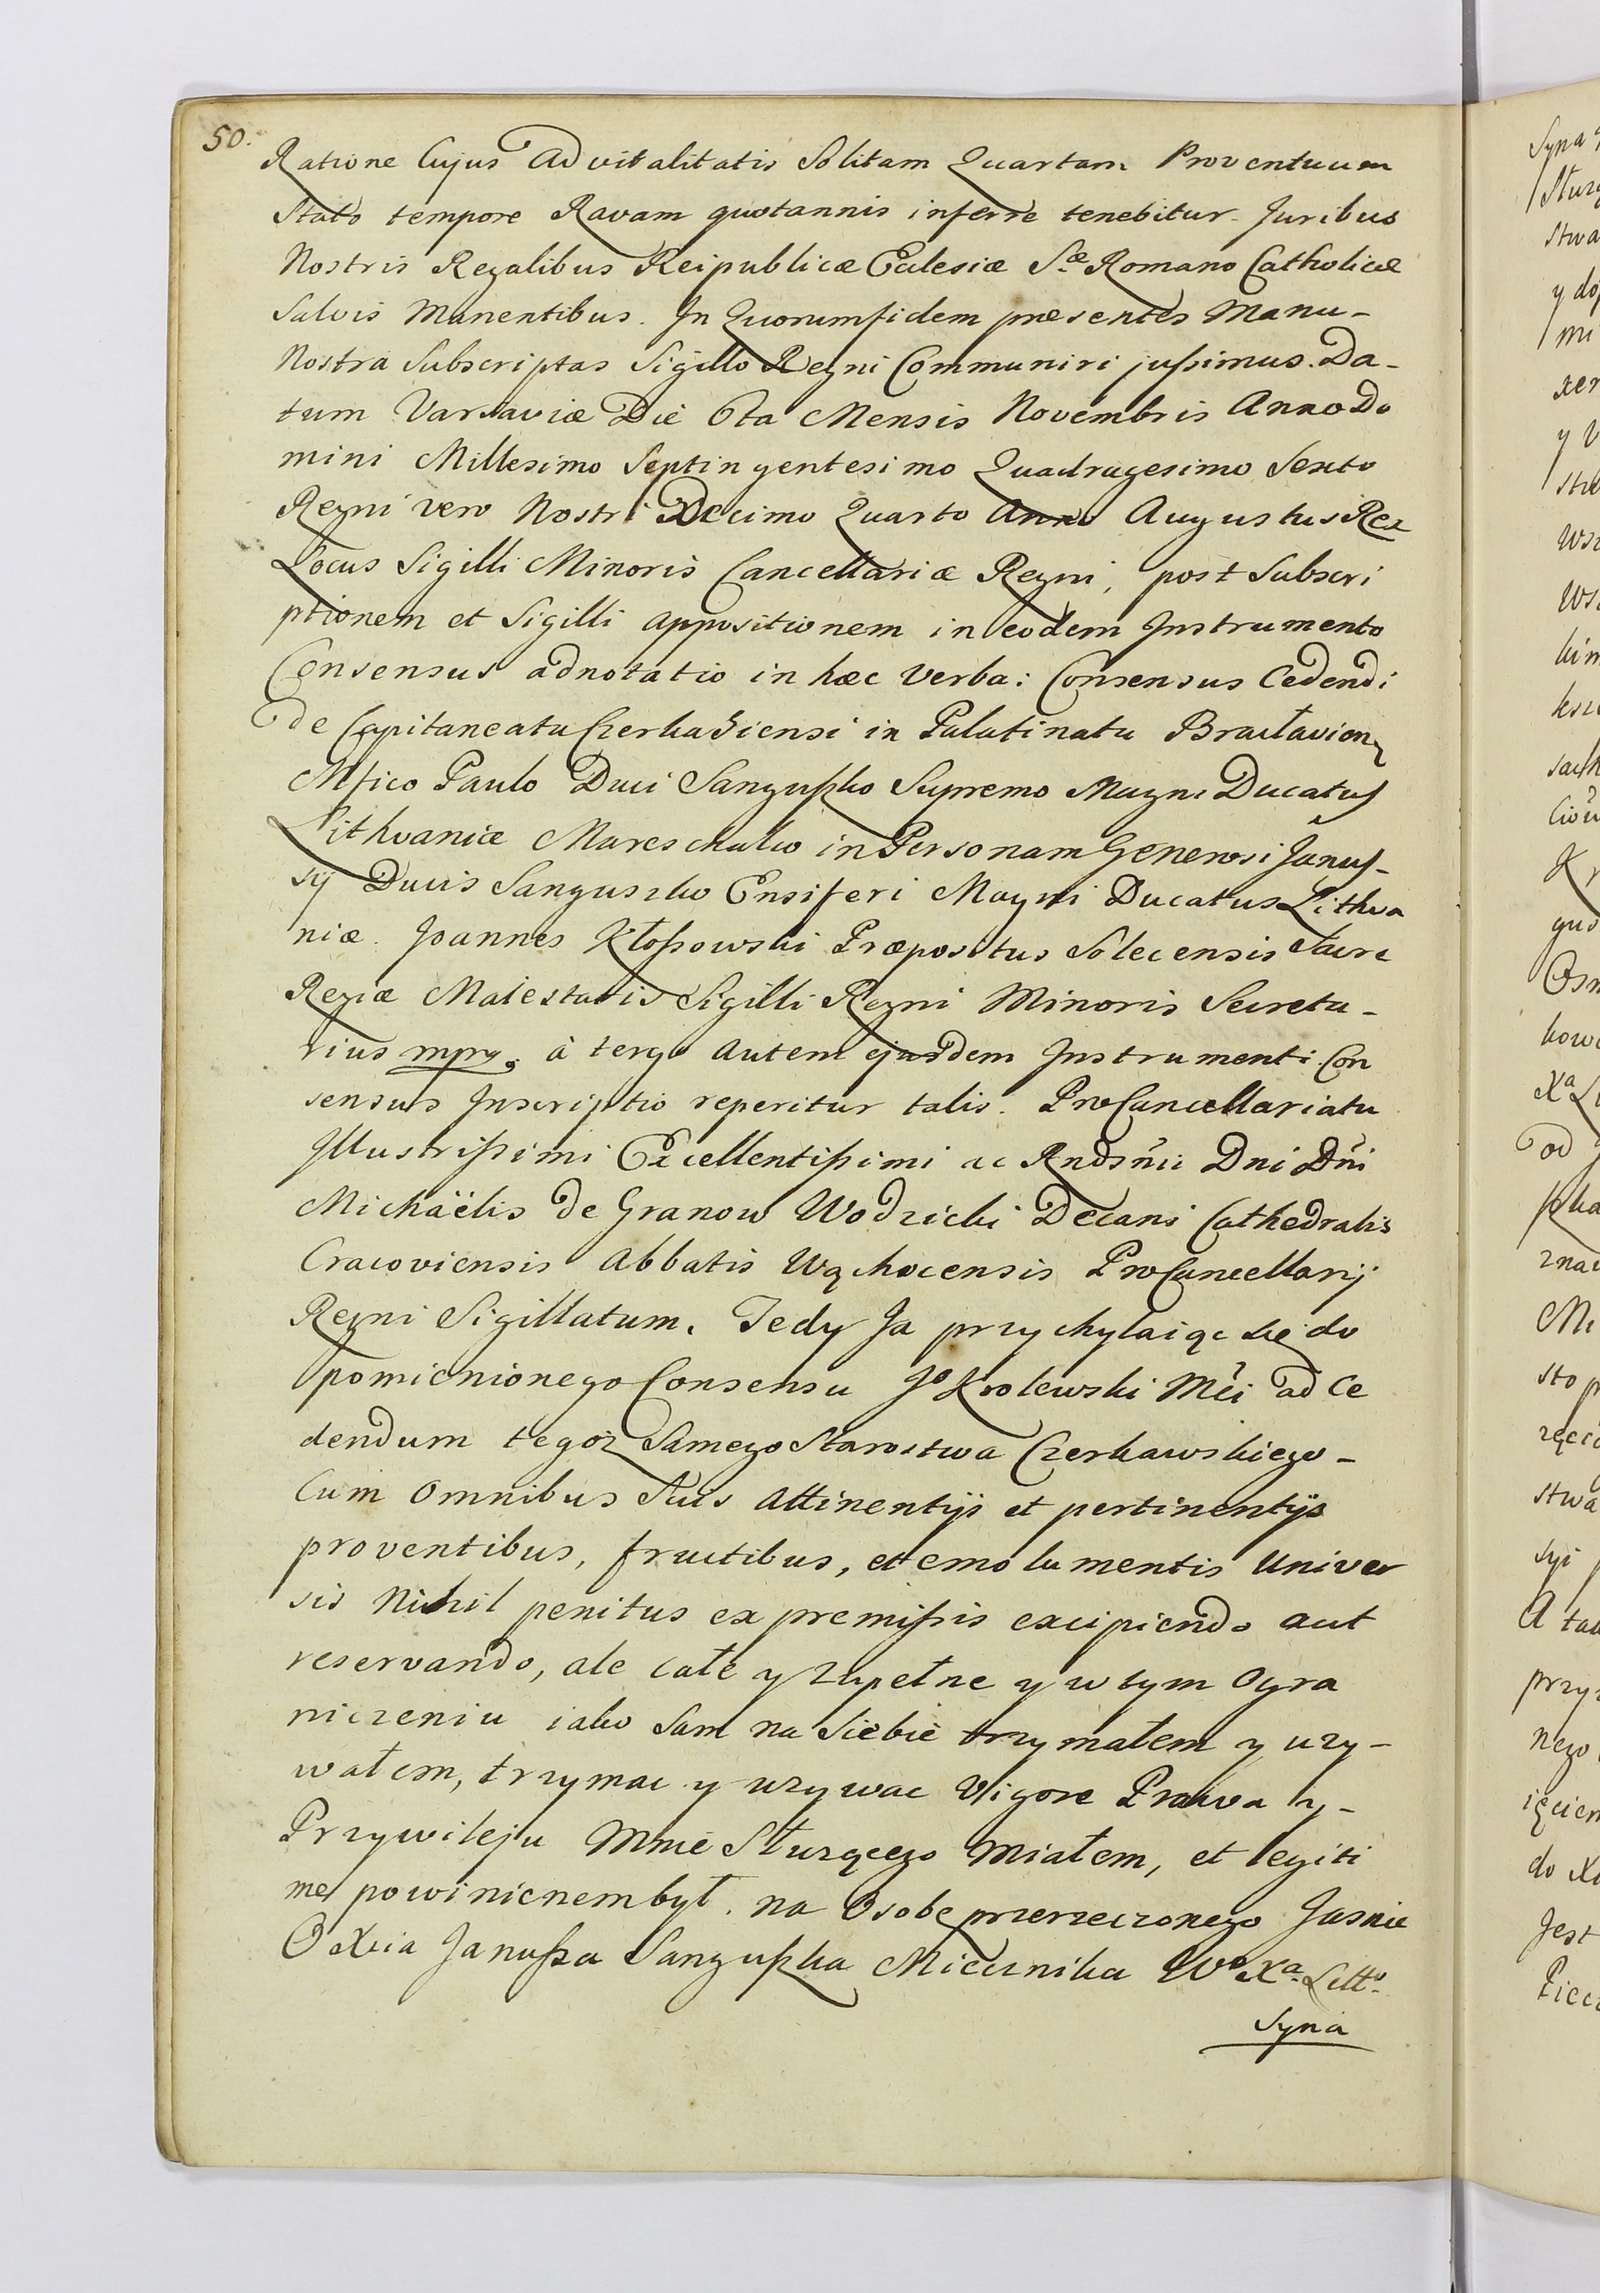 50.
Ratione Cujus Advitalitatis Solitam Quartam Proventuum
Stato tempore Ravam quotannis inferre tenebitur. Juribus
Nostris Regalibus Reipublicæ Eclesiæ Sæ Romano Catholicæ
Salvis Manentibus. In Quorumfidem præsentes Manu-
Nostra Subscriptas Sigillo Regni Communiri jußimus. Da-
tum Varsaviæ Die 6ta Mensis Novembris Anno Do
mini Millesimo Septingentesimo Quadragesimo Sexto
Regni vero Nostri Decimo Quarto Anno Augustus Rex
Locus Sigilli Minoris Cancellariæ Regni, post Subscri
ptionem et Sigilli appositionem in eodem Instrumento
Consensus adnotatio in hæc Verba: Consensus Cedendi
de Capitaneatu Czerkasiensi in Palatinatu Bracłavien
Mfico Paulo Duci Sangußko Supremo Magni Ducatus
Lithvaniæ Mareschalco in Personam Generosi Janus-
sij Ducis Sanguszko Ensiferi Magni Ducatus Lithva
niæ. Joannes Kłoßowski Præpositus Solecensis Sacre
Regiæ Maiestatis Sigilli Regni Minoris Secreta-
rius mpr. à tergo autem ejusdem Instrumenti Con
sensus Inscriptio reperitur talis. ProCancellariatu
Illustrißimi Excellentißimi ac Rndsm̃i Dni Dñi
Michaëlis de Granow Wodzicki Decani Cathedralis
Cracoviensis Abbatis Wąchocensis ProCancellarij
Regni Sigillatum. Tedy Ja przychylaiąc się do
pomienionego Consensu Jo Krolewski Mci ad Ce
dendum tegoż Samego Starostwa Czerkawskiego-
Cum Omnibus Suis Attinentijs et pertinentijs
proventibus, fructibus, et emolumentis Univer
sis Nihil penitus ex premißis excipiendo aut
reservando, ale całe y zupełne y w tym Ogra
niczeniu iako Sam na Siebie trzymałem y uzy-
wałem, trzymac y uzywac Vigore Prawa y-
Przywileju Mnie Służącego Miałem, et legiti
me powinienem był. na Osobę przerzeczonego Jasnie
O Xcia Janußa Sangußka Miecznika Wo Xa Litto.
Syna